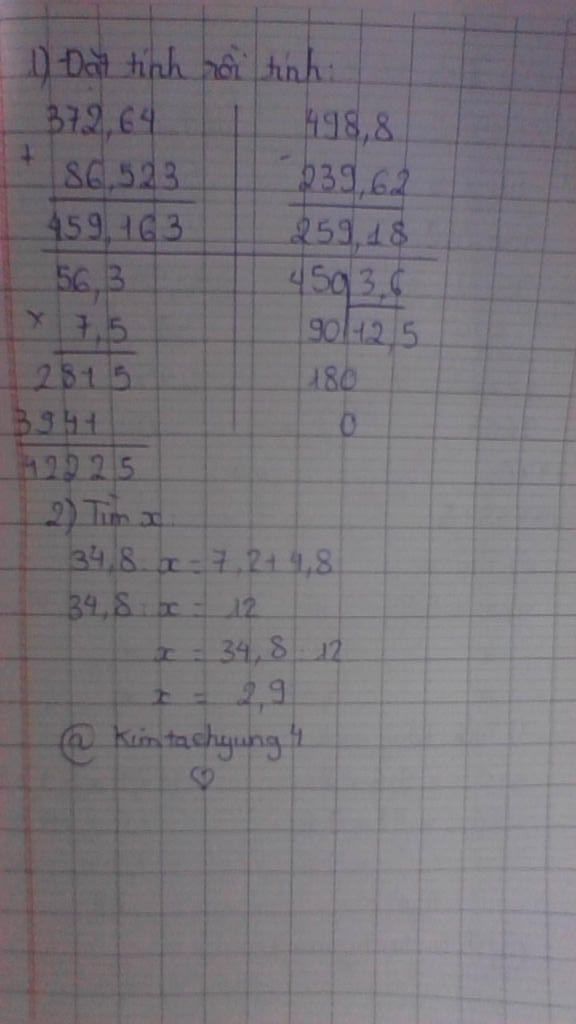 1) Đặt tính rồi tính:
372,64 498,8
+ -
86,523 239,62
459,163 259,18
56,3 450 3,6
x 7,5 90 12,5
2815 180
3941 0
42225
2) Tìm x
34,8 : x = 7,2 + 4,8
34,8 : x = 12
x = 34,8 : 12
x = 2,9
@ Kimtaehyung4
♡